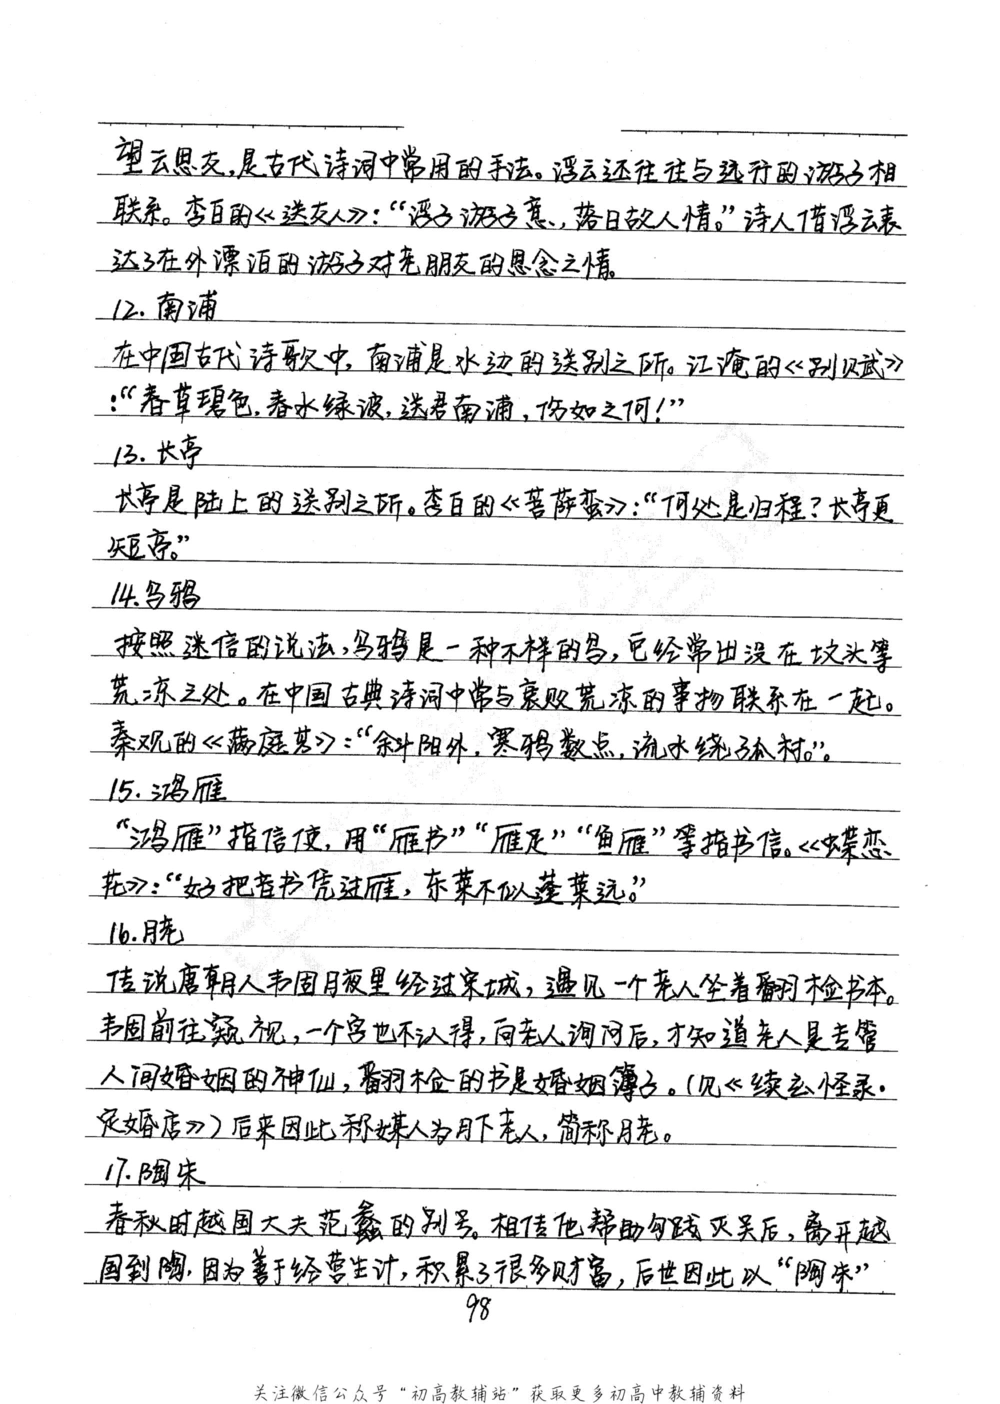 望云思友,是古代诗词中常用的手法。浮云还往往与远行的游子相
联系。李白的《送友人》:“浮子游子意,落日故人情。”诗人借浮云表
达了在外漂泊的游子对老朋友的思念之情。
12. 南浦
在中国古代诗歌中,南浦是水边的送别之所。江淹的《别贝武》
:“春草碧色,春水绿波,送君南浦,伤如之何!”
13. 长亭
长亭是陆上的送别之所。李白的《菩萨蛮》:“何处是归程?长亭更
短亭。”
14.乌鸦
按照迷信的说法,乌鸦是一种不祥的鸟,它经常出没在坟头等
荒凉之处。在中国古典诗词中常与衰败荒凉的事物联系在一起。
秦观的《满庭芳》:“余斜阳外,寒鸦数点,流水绕孤村。”。
15.鸿雁
“鸿雁”指信使,用“雁书”“雁足”“鱼雁”等指书信。《蝶恋
花》:“好把音书凭过雁,东莱不似蓬莱远。”
16.月老
传说唐朝人韦固月夜里经过宋城,遇见一个老人坐着翻检书本。
韦固前往窥视,一个字也不认得,向老人询问后,才知道老人是专管
人间婚姻的神仙,翻检的书是婚姻簿子。(见《续玄怪录·
定婚店》)后来因此称媒人为月下老人,简称月老。
17.陶朱
春秋时越国大夫范蠡的别号。相传他帮助勾践灭吴后,离开越
国到陶,因为善于经营生计,积累了很多财富,后世因此以“陶朱”
98
关注微信公众号“初高教辅站”获取更多初高中教辅资料